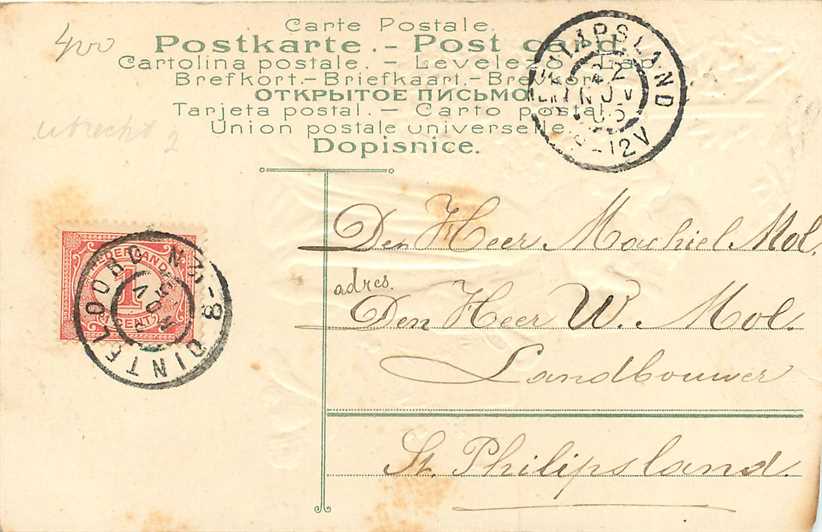 400
Carte Postale.
Postkarte. - Post card.
Cartolina postale. - Levelező-Lap
Brefkort.-Briefkaart.-Brevkort
ОТКРЫТОЕ ПИСЬМО
Tarjeta postal. - Carto postal
Union postale universelle.
Dopisnice.
Utrecht 2
22
NOV
8-12V
NEDERLAND
1
CENT
DINTELOORD
Den Heer Machiel Mol.
adres.
Den Heer W. Mol.
Landbouwer
St. Philipsland.